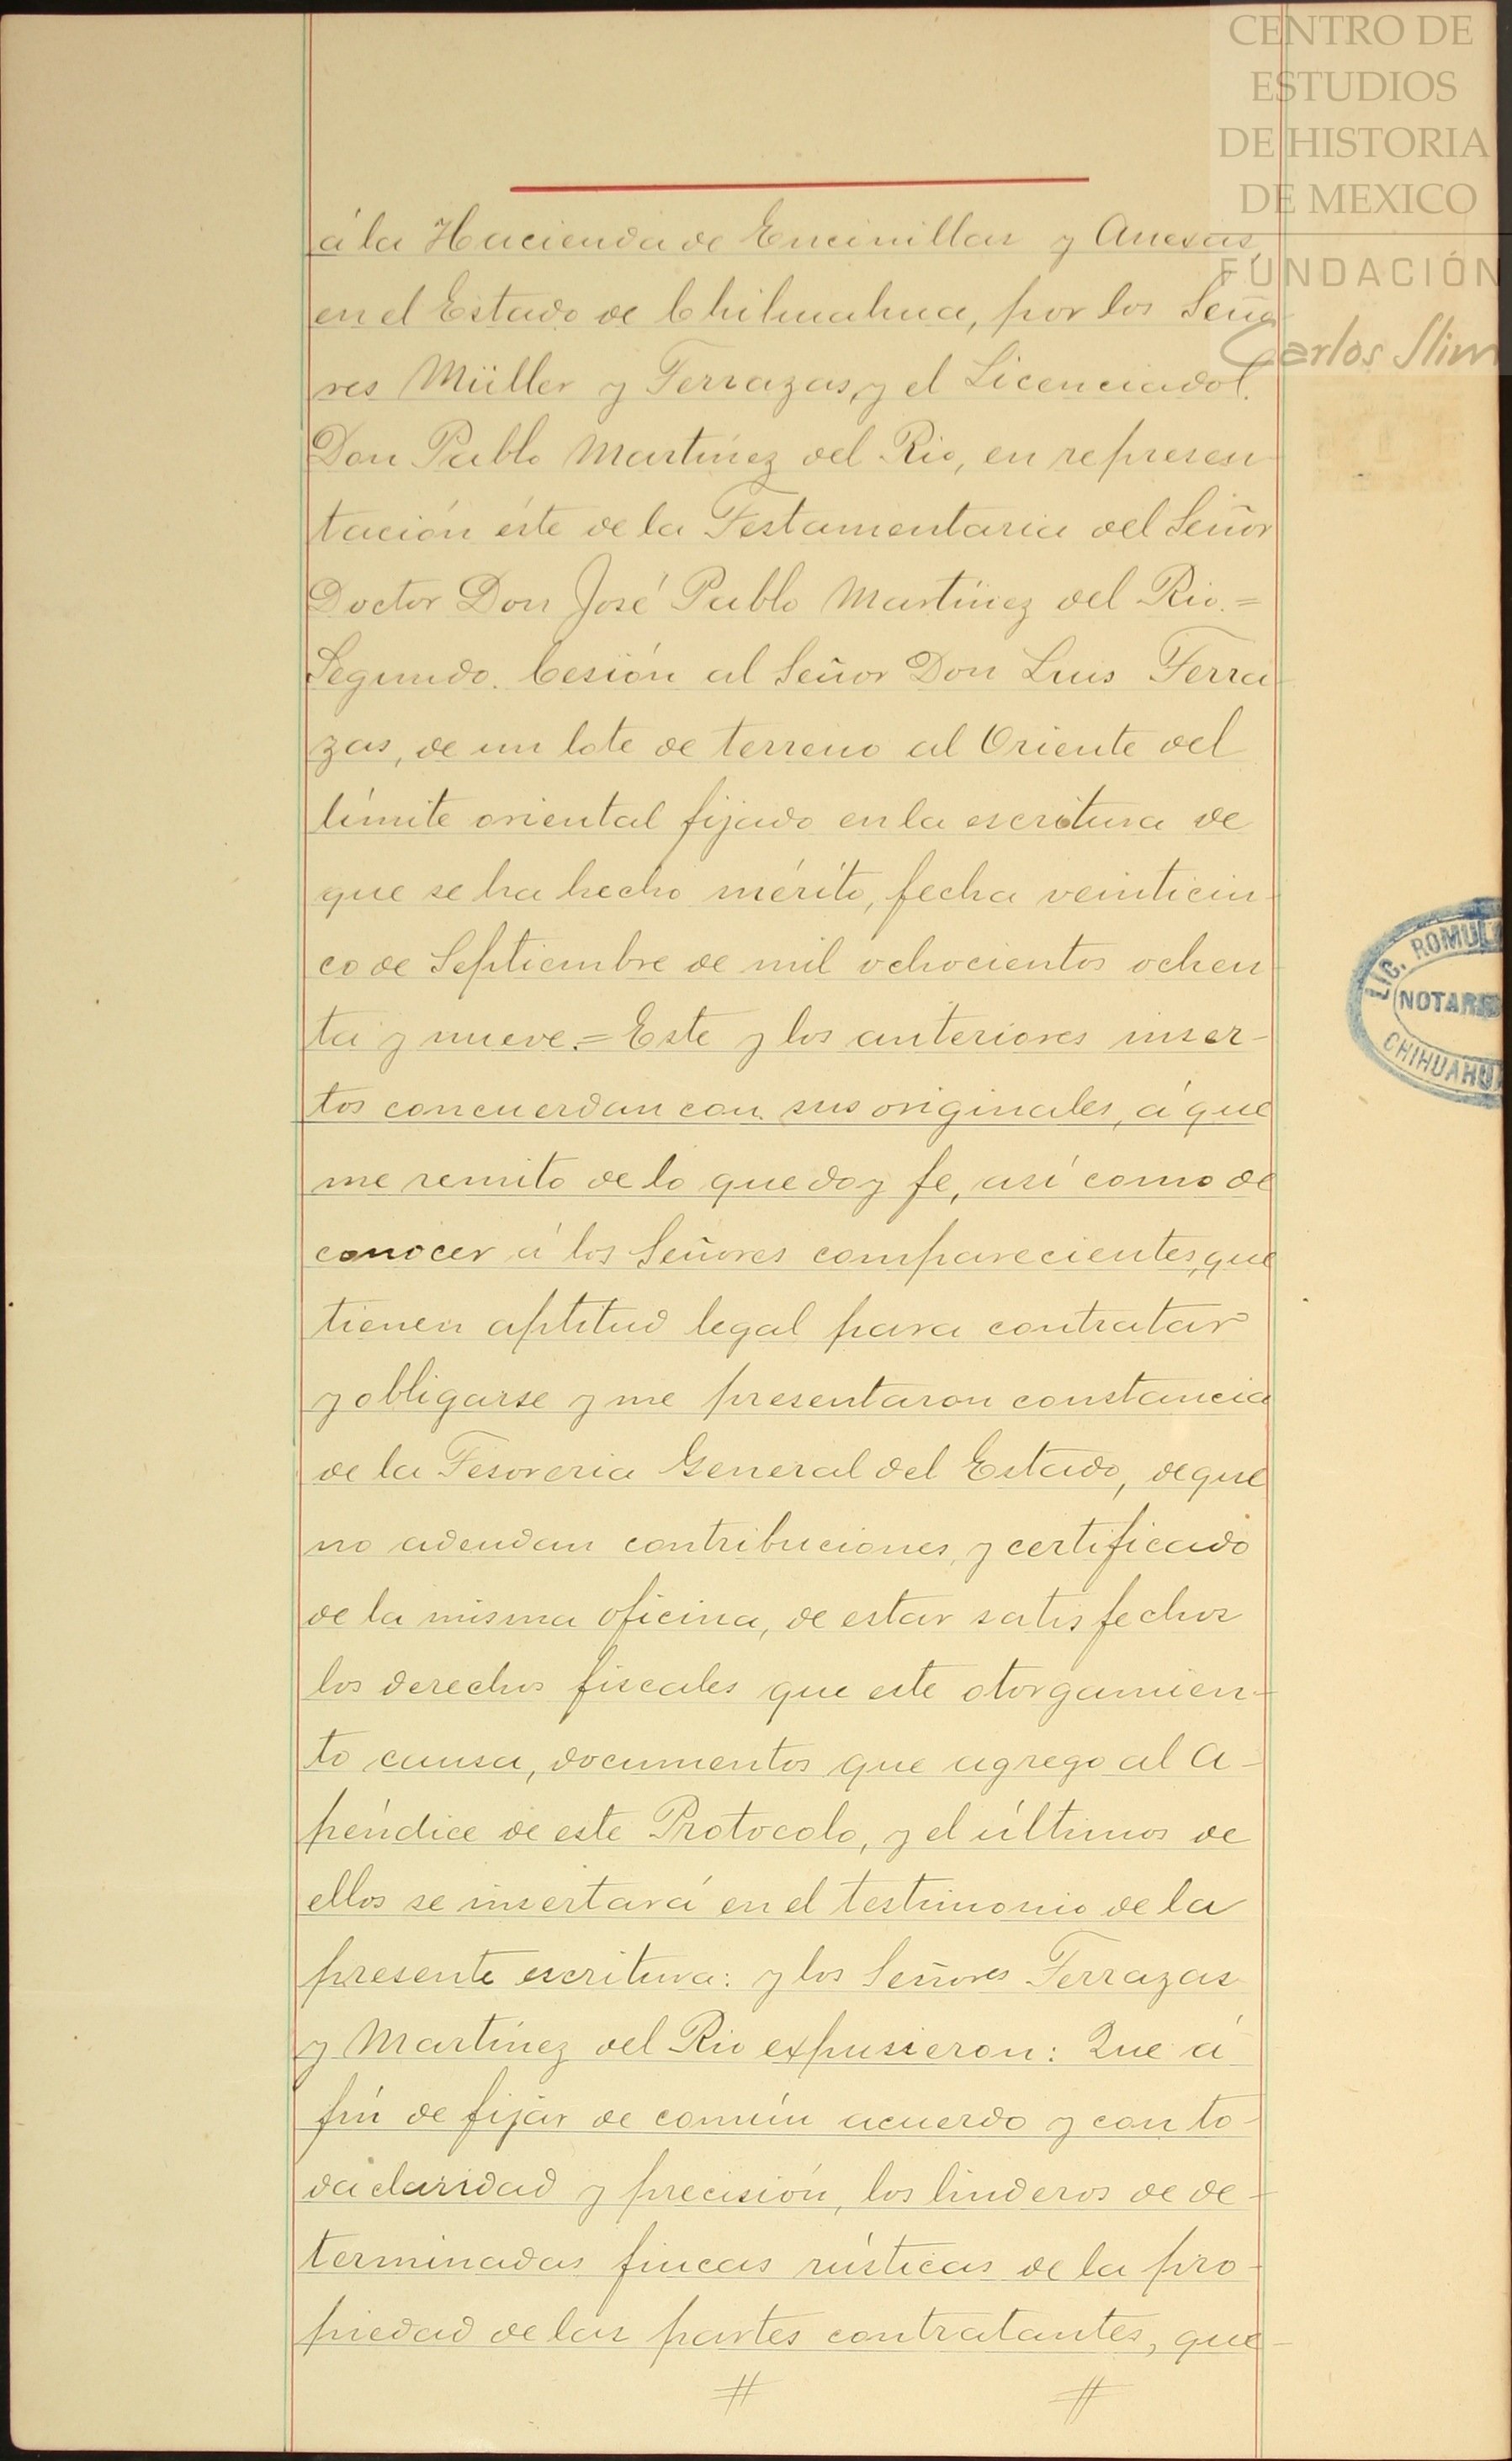 CENTRO DE
ESTUDIOS
DE HISTORIA
DE MEXICO
FUNDACIÓN
Carlos Slim
á la Hacienda de Encinillas y Anexas,
en el Estado de Chihuahua, por los Seño
res Müller y Terrazas, y el Licenciado
Don Pablo Martínez del Rio, en represen
tación éste de la Testamentaria del Señor
Doctor Don José Pablo Martínez del Rio.=
Segundo. Cesión al Señor Don Luis Terra
zas, de un lote de terreno al Oriente del
límite oriental fijado en la escritura de
que se ha hecho mérito, fecha veinticin-
co de Septiembre de mil ochocientos ochen
ta y nueve.= Este y los anteriores inser-
tos concuerdan con sus originales, á que
me remito de lo que doy fe, así como de
conocer á los Señores comparecientes, que
tienen aptitud legal para contratar
y obligarse y me presentaron constancia
de la Tesoreria General del Estado, de que
no adeudan contribuciones, y certificado
de la misma oficina, de estar satisfechos
los derechos fiscales que este otorgamien-
to causa, documentos que agrego al A-
péndice de este Protocolo, y el últimos de
ellos se insertará en el testimonio de la
presente escritura: y los Señores Terrazas
y Martínez del Rio expusieron: Que á
fin de fijar de común acuerdo y con to-
da claridad y precisión, los linderos de de-
terminadas fincas rústicas de la pro-
piedad de las partes contratantes, que
LIC. ROMUL
NOTAR
CHIHUAHU